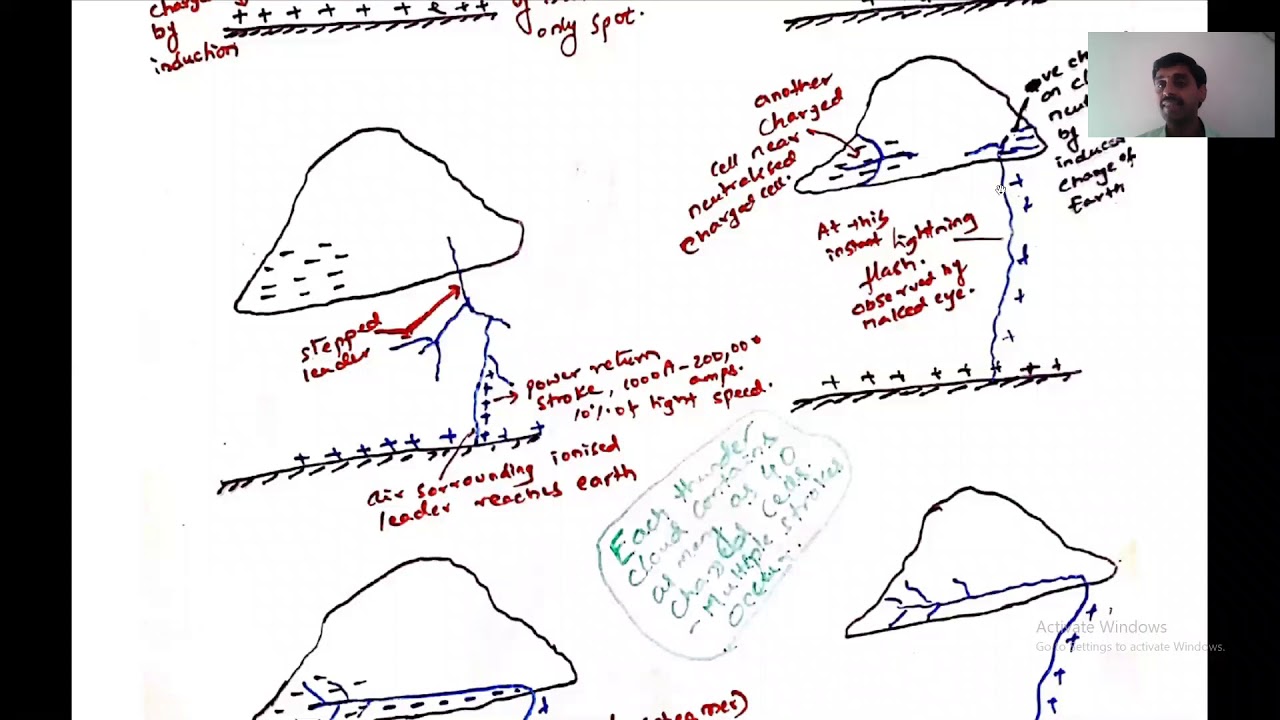 charge
by
induction
+ + + + + + +
only spot.
another
charged
cell near
neutralised
charged cell.
ve ch
on cl
neu
by
induced
charge of
Earth
At this
instant lightning
flash.
observed by
naked eye.
stepped
leader
power return
stroke, 1000A-200,000
amps.
10% of light speed.
air sorrounding ionised
leader reaches earth
Each thunder
cloud contains
as many as 40
charged cells.
- Multiple strokes
occur.
Activate Windows
Go to Settings to activate Windows.